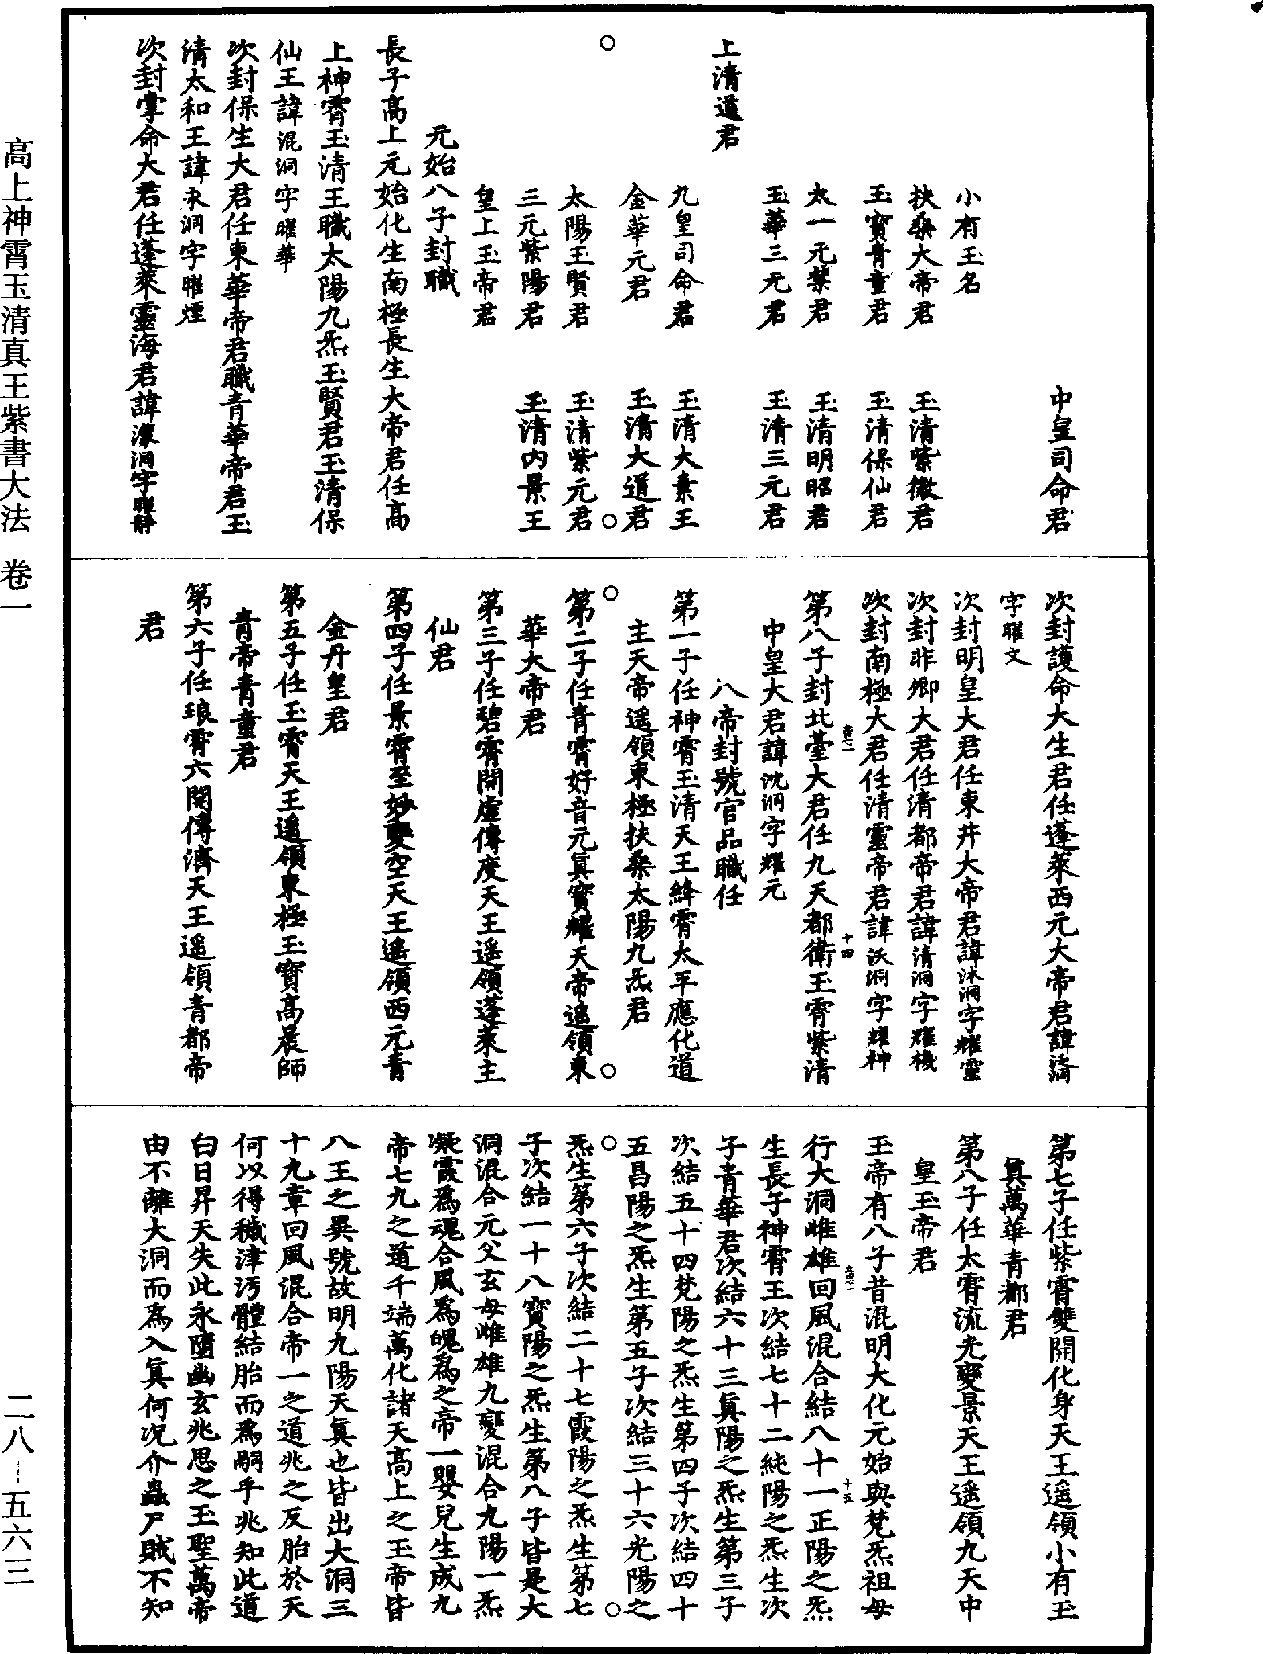 高上神霄玉清真王紫書大法 卷一
二八-五六三
中皇司命君
小有玉名
扶桑大帝君 玉清紫微君
玉寶青童君 玉清保仙君
太一元禁君 玉清明昭君
玉華三元君 玉清三元君
上清道君
九皇司命君 玉清大素王
金華元君 玉清大道君
太陽玉賢君 玉清紫元君
三元紫陽君 玉清内景王
皇上玉帝君
元始八子封職
長子高上元始化生南極長生大帝君任高
上神霄玉清王職太陽九炁玉賢君玉清保
仙王諱混洞字曜華
次封保生大君任東華帝君職青華帝君玉
清太和王諱永洞字曜煙
次封掌命大君任蓬萊靈海君諱濃洞字曜靜
次封護命大生君任蓬萊西元大帝君諱
字曜文
次封明皇大君任東井大帝君諱沐洞字耀靈
次封非卿大君任清都帝君諱清洞字耀機
次封南極大君任清靈帝君諱沃洞字耀神
十四
第八子封北臺大君任九天都衛玉霄紫清
中皇大君諱沈洞字耀元
八帝封號官品職任
第一子任神霄玉清天王絳霄太平應化道
主天帝遥領東極扶桑太陽九炁君
第二子任青霄好音元真寶耀天帝遥領東
華大帝君
第三子任碧霄開虛傳度天王遥領蓬萊主
仙君
第四子任景霄至妙聖空天王遥領西元青
金丹皇君
第五子任玉霄天王遥領東極玉寶高晨師
青帝青童君
第六子任琅霄六開傳濟天王遥領青都帝
君
第七子任紫霄雙開化身天王遥領小有玉
真萬華青都君
第八子任太霄流光變景天王遥領九天中
皇玉帝君
玉帝有八子昔混明大化元始與梵炁祖母
十五
行大洞雌雄回風混合結八十一正陽之炁
生長子神霄王次結七十二純陽之炁生次
子青華君次結六十三真陽之炁生第三子
次結五十四梵陽之炁生第四子次結四十
五昌陽之炁生第五子次結三十六光陽之
炁生第六子次結二十七霞陽之炁生第七
子次結一十八寶陽之炁生第八子皆是大
洞混合元父玄母雌雄九變混合九陽一炁
凝霞為魂合風為魄為之帝一嬰兒生成九
帝七九之道千端萬化諸天高上之玉帝皆
八王之異號故明九陽天真也皆出大洞三
十九章回風混合帝一之道兆之反胎於天
何以得穢津汚體結胎而為嗣乎兆知此道
白日昇天失此永墮幽玄兆思之玉聖萬帝
由不離大洞而為入真何况介蟲尸賊不知